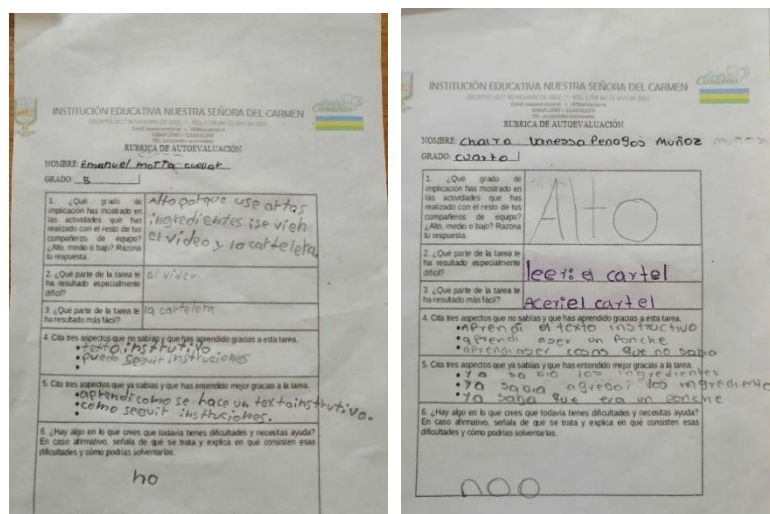 INSTITUCIÓN EDUCATIVA NUESTRA SEÑORA DEL CARMEN
RUBRICA DE AUTOEVALUACIÓN
NOMBRE: Emanuel motta cuellar
GRADO:
1. ¿Qué grado de
implicación has mostrado en
las actividades que has
realizado con el resto de tus
compañeros de equipo?
¿Alto, medio o bajo? Razona
tu respuesta.
Alto porque use artas
ingredientes ise vien
el video y la cartelera.
2. ¿Qué parte de la tarea te
ha resultado especialmente
difícil?
el video
3. ¿Qué parte de la tarea te
ha resultado más fácil?
la cartelera
4. Cita tres aspectos que no sabías y que has aprendido gracias a esta tarea.
texto instrutivo
puedo seguir instruciones
5. Cita tres aspectos que ya sabías y que has entendido mejor gracias a la tarea.
aprendi como se hace un texto instrutivo.
como seguir instrusiones.
6. ¿Hay algo en lo que crees que todavía tienes dificultades y necesitas ayuda?
En caso afirmativo, señala de qué se trata y explica en qué consisten esas
dificultades y cómo podrías solventarlas.
no
INSTITUCIÓN EDUCATIVA NUESTRA SEÑORA DEL CARMEN
RUBRICA DE AUTOEVALUACIÓN
NOMBRE: chaira vanessa Penagos Muñoz
GRADO: cuarto
1. ¿Qué grado de
implicación has mostrado en
las actividades que has
realizado con el resto de tus
compañeros de equipo?
¿Alto, medio o bajo? Razona
tu respuesta.
Alto
2. ¿Qué parte de la tarea te
ha resultado especialmente
difícil?
leer: el cartel
3. ¿Qué parte de la tarea te
ha resultado más fácil?
Acer el cartel
4. Cita tres aspectos que no sabías y que has aprendido gracias a esta tarea.
Aprendi el texto instructivo
aprendi aser un Ponche
aprendi aser cosas que no sabia
5. Cita tres aspectos que ya sabías y que has entendido mejor gracias a la tarea.
Ya sabia los ingredientes
ya sabia agregar los ingrediente
Ya saba que era un ponche
6. ¿Hay algo en lo que crees que todavía tienes dificultades y necesitas ayuda?
En caso afirmativo, señala de qué se trata y explica en qué consisten esas
dificultades y cómo podrías solventarlas.
noo